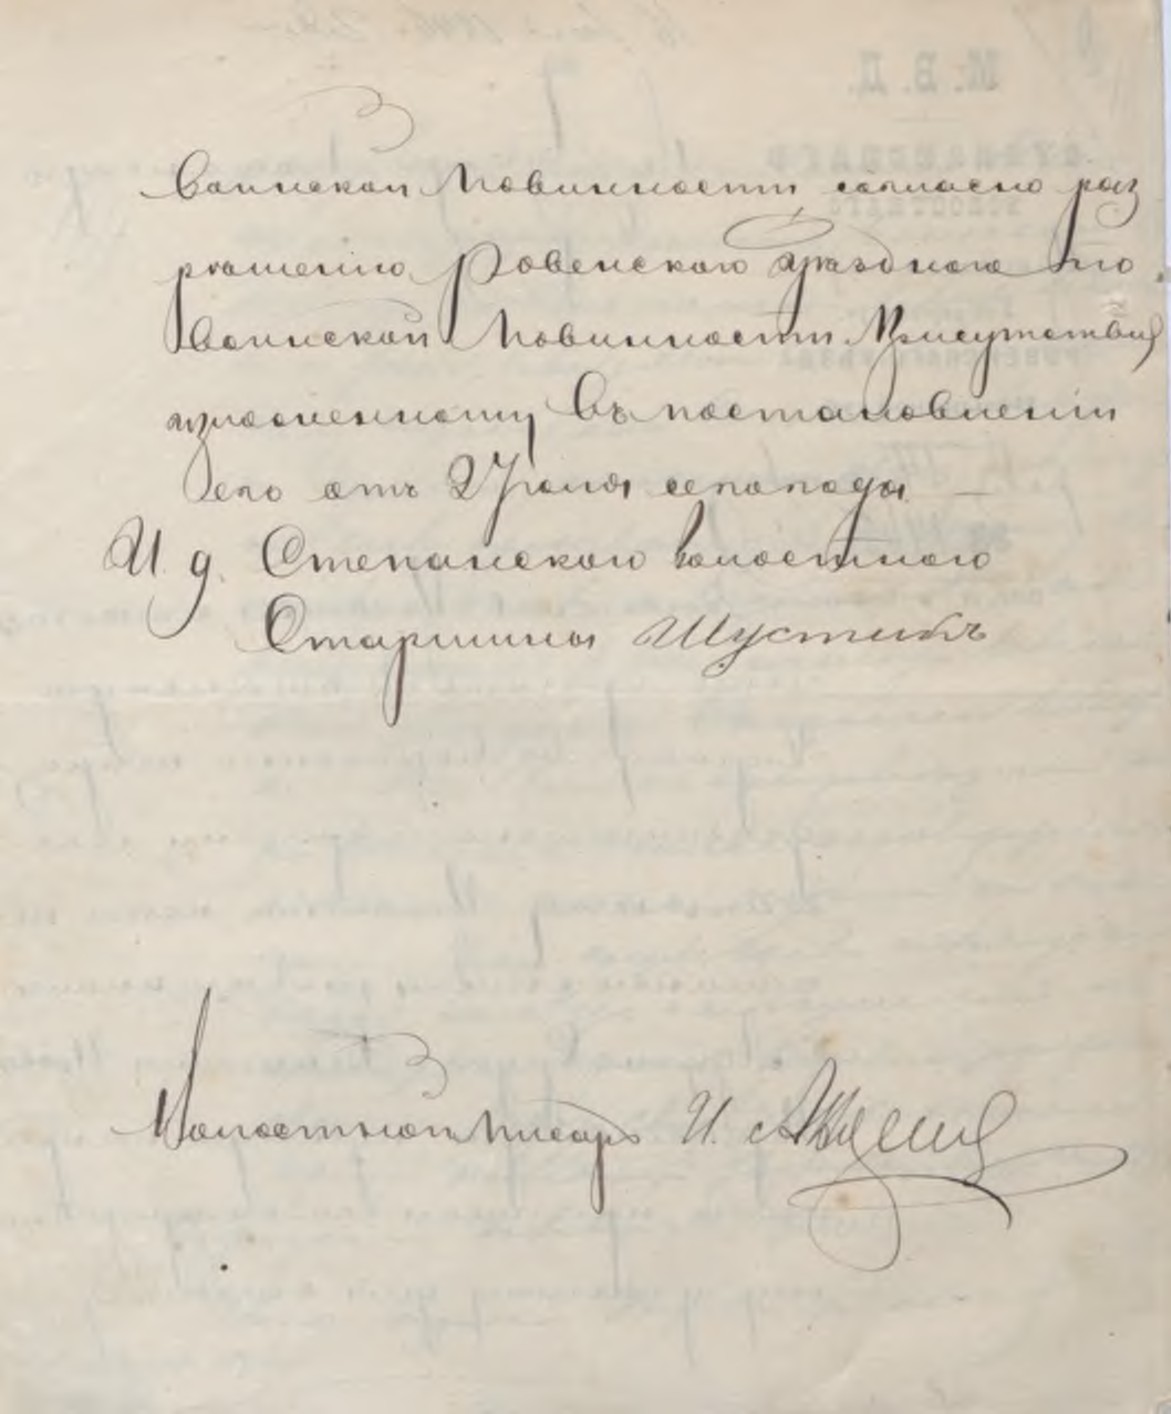 воинской повинности согласно раз
рѣшенію Ровенскаго Уѣзднаго по
воинской повинности Присутствія
изложенному въ постановленіи
его отъ 2 Іюля сего года
И. д. Степанскаго волостного
Старшины Шустикъ
Волостной писарь И.